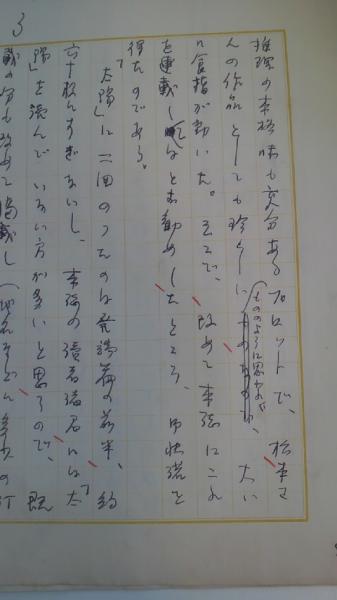 3
推理の本格味も充分あるプロットで、松本さ
んの作品としても珍らしい
もののように思われ
大い
に食指が動いた。そこで、改めて本誌にこれ
を連載し
はとお勧めしたところ、御快諾を
得たのである。
「太陽」に二回のったのは発端篇の前半、約
六十枚にすぎないし、本誌の読者諸君には「太
陽」を読んでいない方が多いと思うので、既
載の分も改めて掲載し